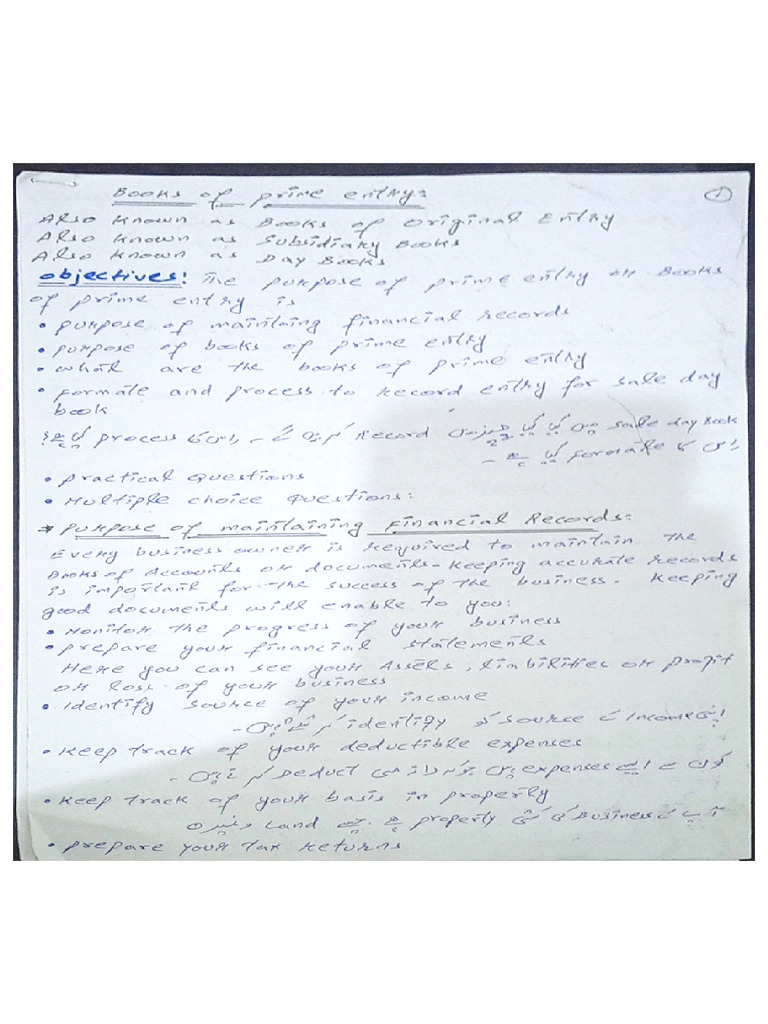 Books of prime entry:
①
Also known as Books of original Entry
Also known as Subsidiary Books
Also known as Day Books
objectives: The purpose of prime entry or Books
of prime entry is
• purpose of maintaing financial records
• purpose of books of prime entry
• what are the books of prime entry
• formate and process to record entry for sale day
book
sale day Book میں کیا کیا چیزیں Record کرتے ہیں گے - اس کا process کیا ہے؟
اس کا formate کیا ہے -
• practical Questions
• Multiple choice Questions:
* purpose of maintaining Financial Records:
Every business owner is required to maintain the
Books of Accounts or documents. Keeping accurate records
is important for the success of the business. Keeping
good documents will enable to you:
• Monitor the progress of your business
• prepare your financial statements
Here you can see your Assets, liabilities or profit
or loss of your business
• Identify source of your income
اپنی Income کے source کو identify کر سکتے ہیں -
• Keep track of your deductible expenses
کون سے ایسے expenses ہیں جو کہ Deduct کرتے ہیں -
• Keep track of your basis in property
آپ کے Business کی کتنی property ہے. جیسے Land وغیرہ
• prepare your tax returns